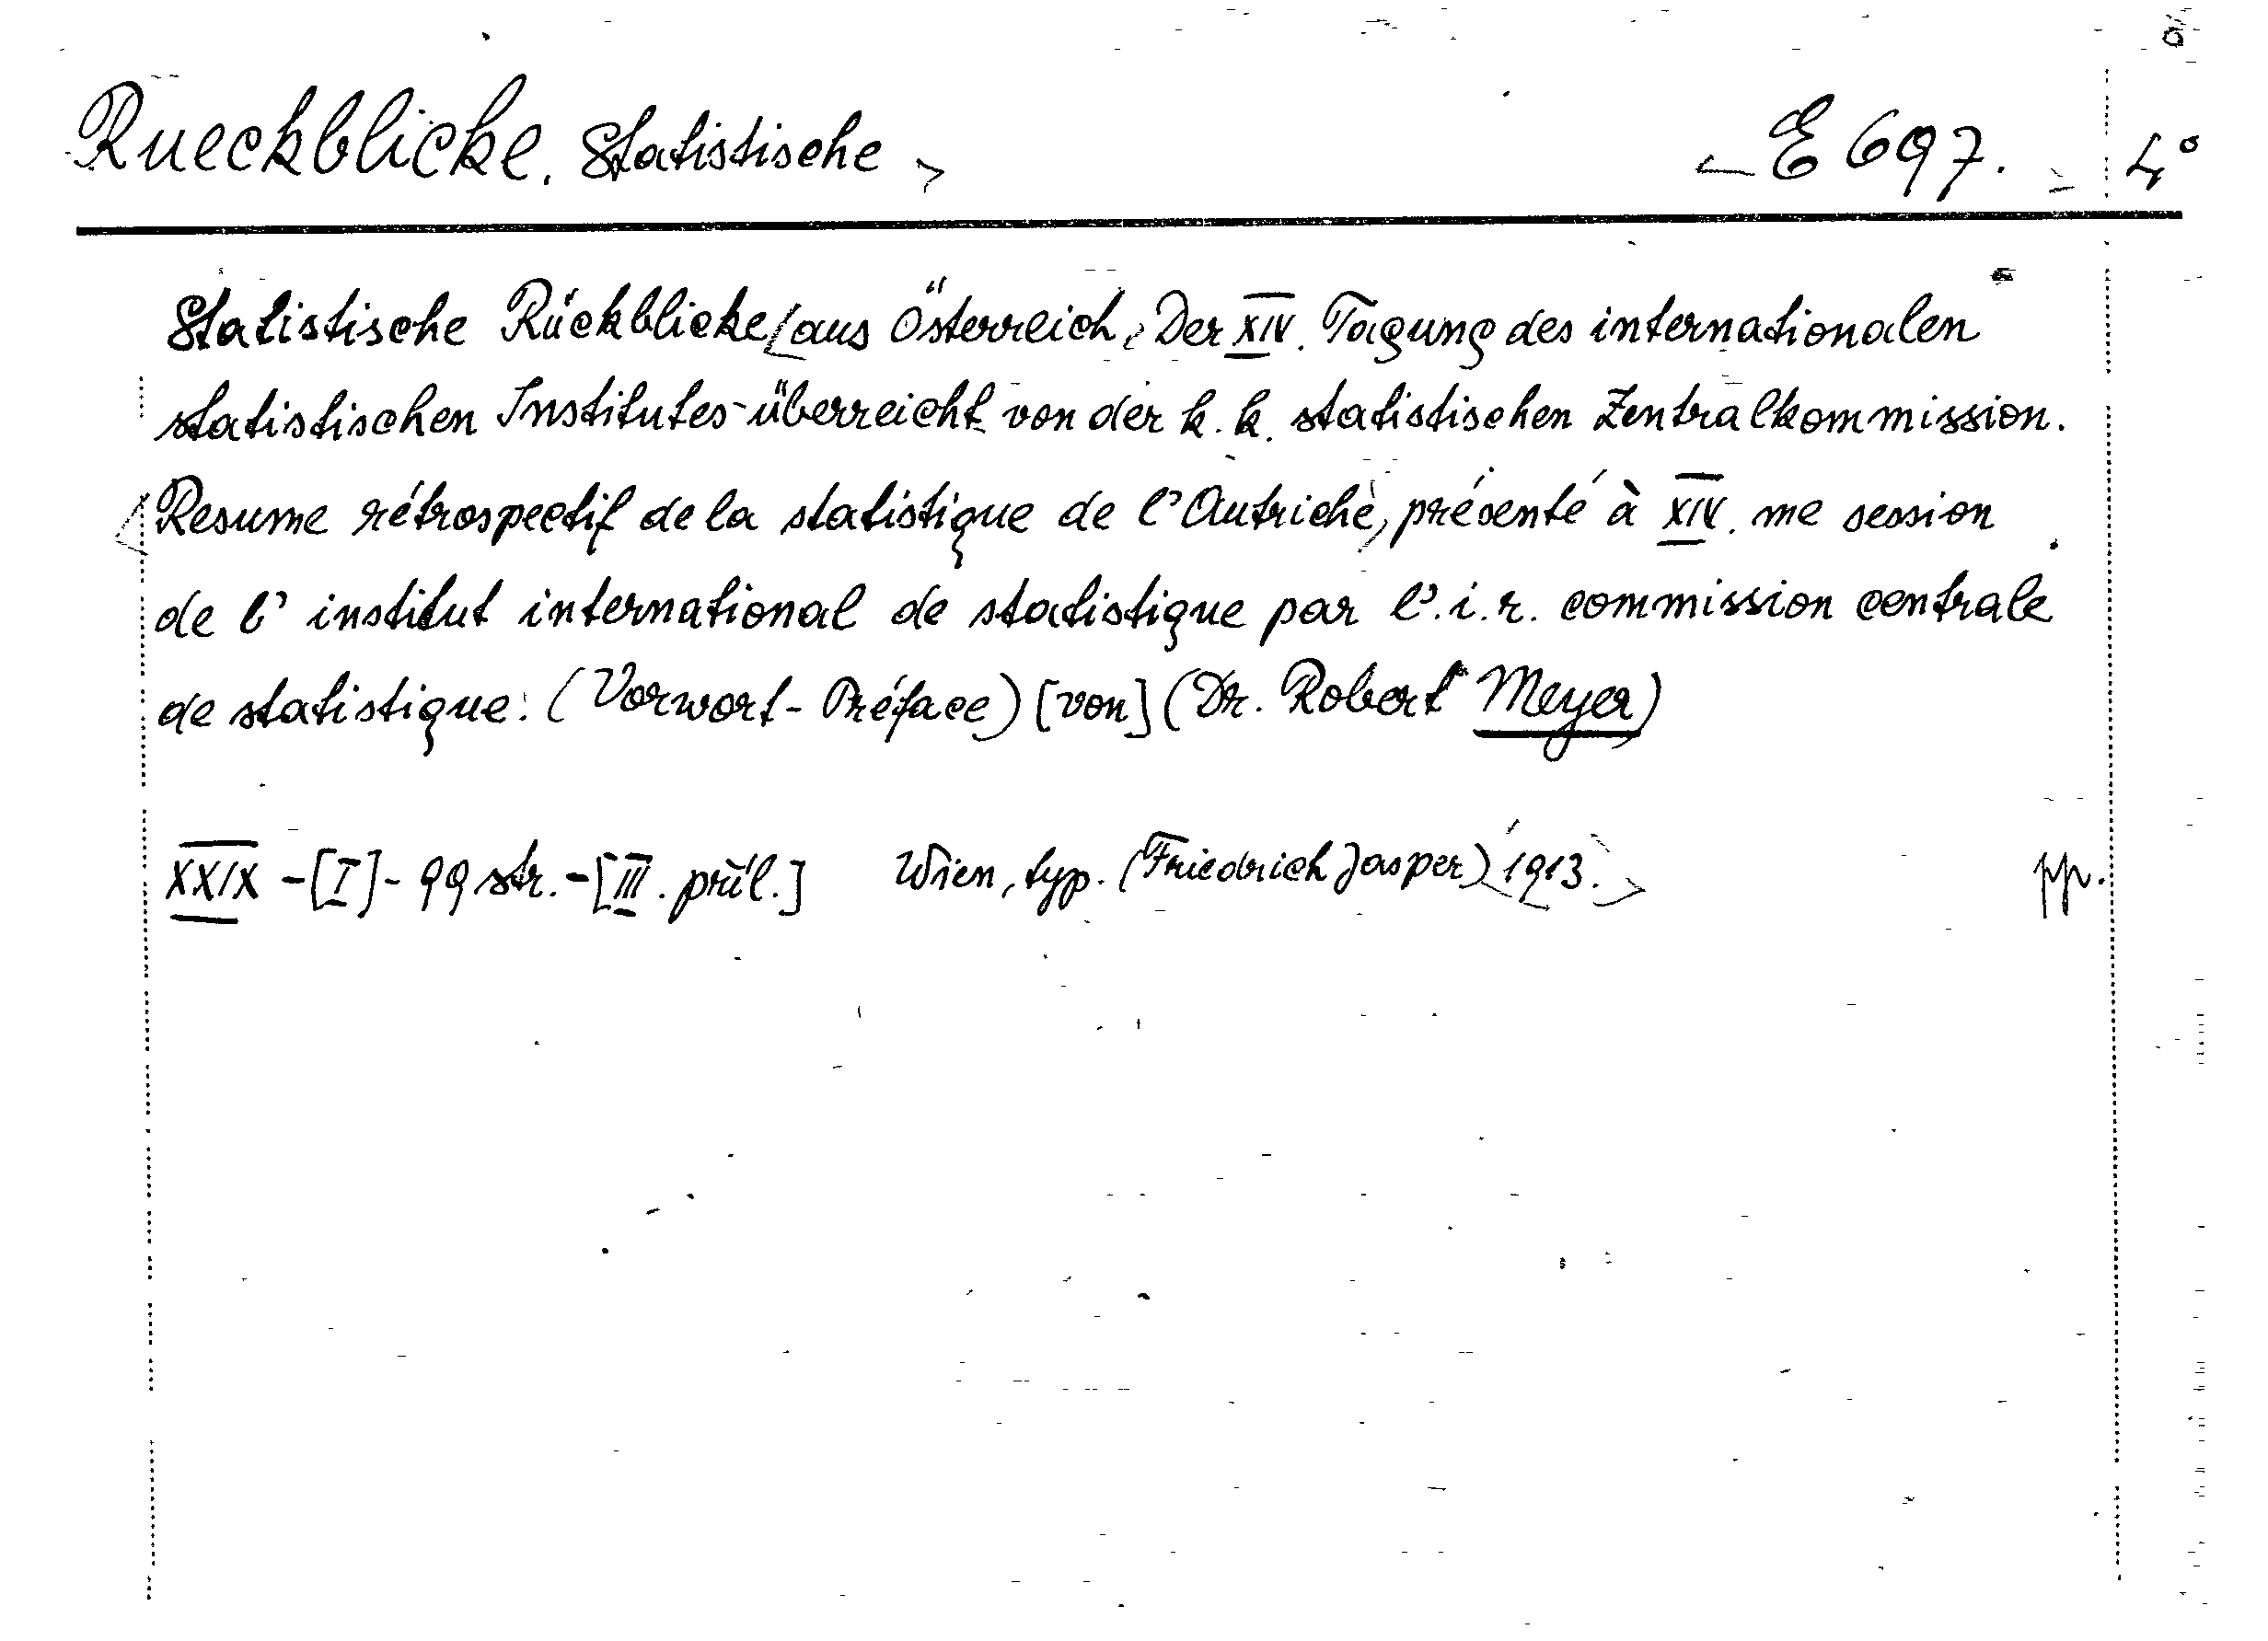 Rueckblicke. Statistische E 697. 4°
Statistische Rückblicke aus Österreich. Der XIV. Tagung des internationalen
statistischen Institutes überreicht von der k. k. statistischen Zentralkommission.
Resume rétrospectif de la statistique de l'Autriche, présenté à XIV. me session
de l' institut international de statistique par l'.i.r. commission centrale
de statistique. (Vorwort - Préface) [von] (Dr. Robert Meyer)
XXIX - [I] - 99 str. - [III. příl.] Wien, typ. (Friedrich Jasper) 1913. pp.